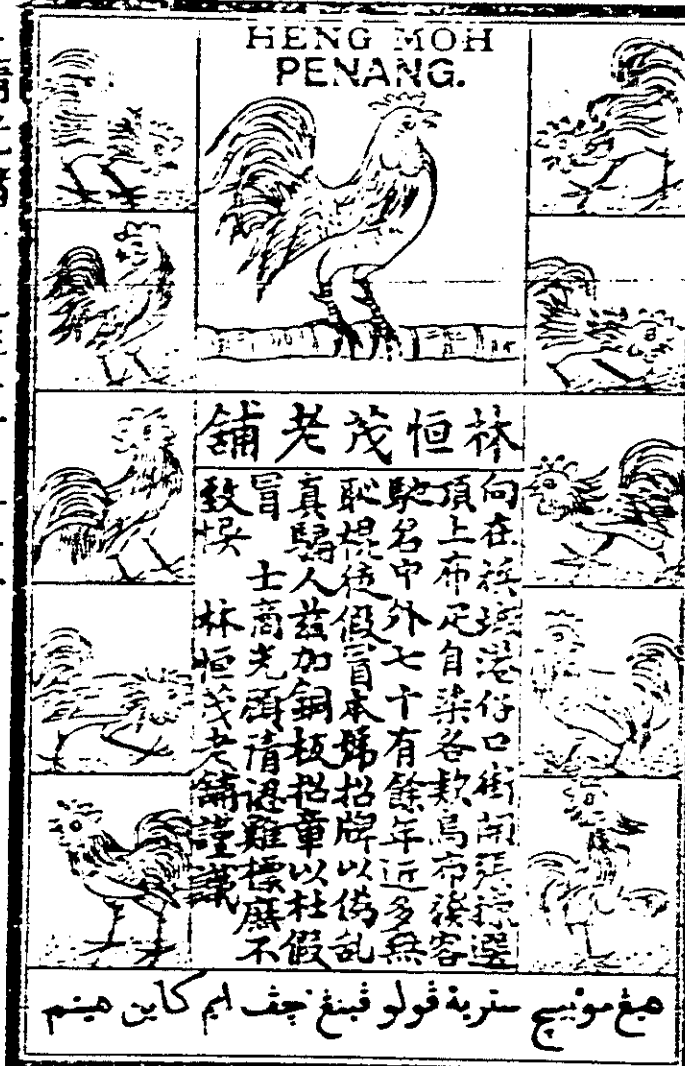 HENG MOH
PENANG.
林恒茂老舖
向在檳城港仔口街開張揀選
頂上布疋自染各欵烏布發客
馳名中外七十有餘年近多無
恥棍徒假冒本號招牌以偽亂
真騙人茲加銅板招章以杜假
冒 士商光顧請認雞標庶不
致悞 林恒茂老舖謹識
هيڠ موئيسي سترية ڤولو ڤينڠ چڤ ايم كاين هيتم